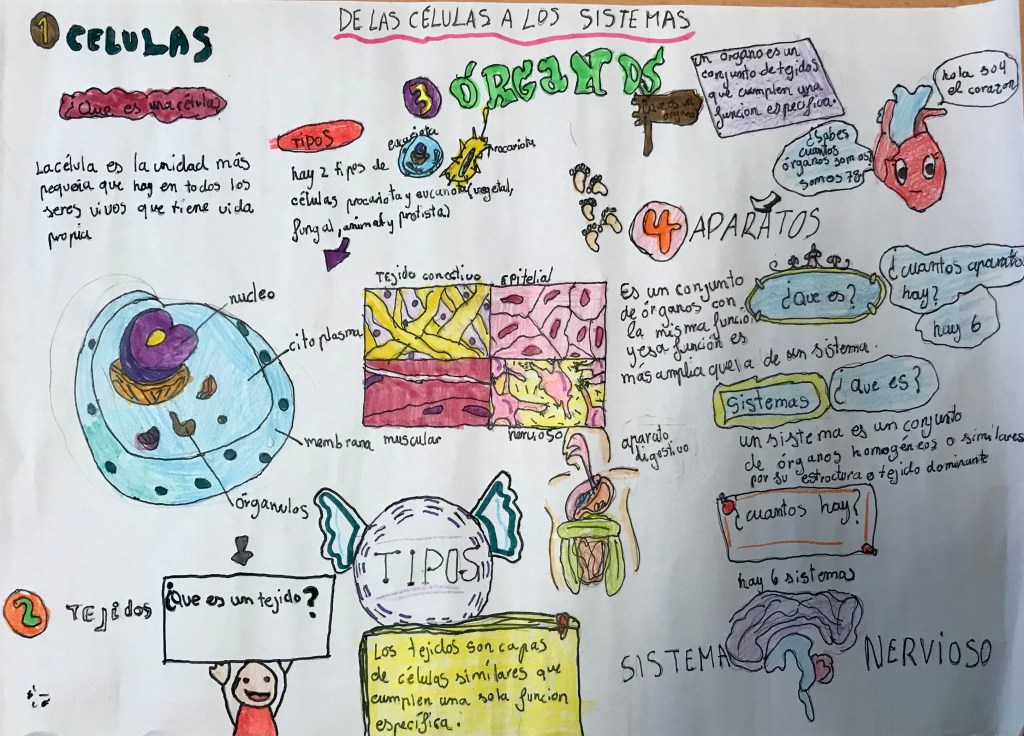 DE LAS CÉLULAS A LOS SISTEMAS
1
CELULAS
¿Que es una célula?
La célula es la unidad más
pequeña que hay en todos los
seres vivos que tiene vida
propia
TIPOS
eucariota
procariota
hay 2 tipos de
células procariota y eucariota (vegetal,
fungal, animal y protista)
nucleo
cito plasma
membrana
órganulos
2
TEJIDOS
¿Que es un tejido?
TIPOS
Los tejidos son capas
de células similares que
cumplen una sola funcion
específica.
Tejido conectivo
Epitelial
muscular
nervioso
3
ÓRGANOS
Un órgano es un
conjunto de tejidos
que cumplen una
funcion especifica.
hola soy
el corazon
¿Sabes
cuantos
órganos somos?
somos 78
4
APARATOS
¿Que es?
Es un conjunto
de órganos con
la misma funcion
y esa función es
más amplia que la de un sistema.
¿cuantos aparatos
hay?
hay 6
aparato
digestivo
Sistemas
¿Que es?
un sistema es un conjunto
de órganos homogéneos o similares
por su estructura o tejido dominante
¿cuantos hay?
hay 6 sistemas
SISTEMA NERVIOSO